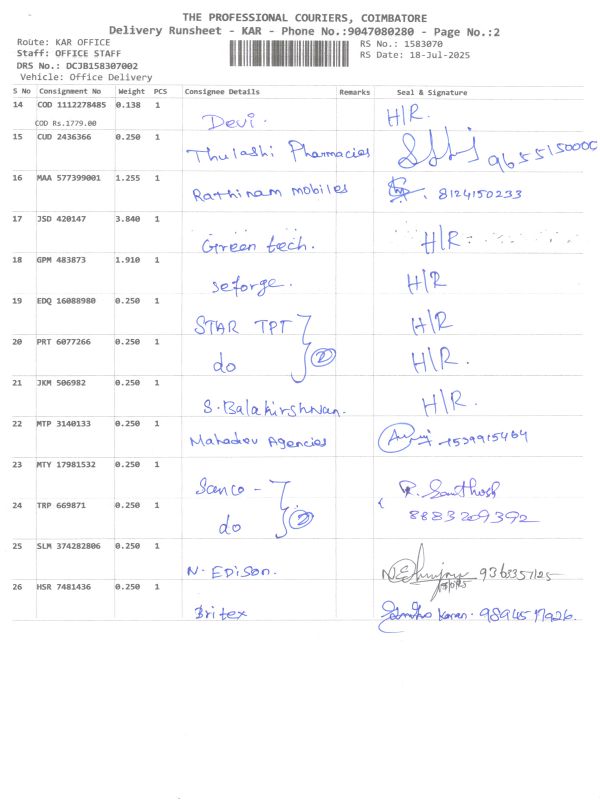 THE PROFESSIONAL COURIERS, COIMBATORE
Delivery Runsheet - KAR - Phone No.:9047080280 - Page No.:2
Route: KAR OFFICE
Staff: OFFICE STAFF
DRS No.: DCJB158307002
Vehicle: Office Delivery
RS No.: 1583070
RS Date: 18-Jul-2025
S No Consignment No Weight PCS Consignee Details Remarks Seal & Signature
14 COD 1112278485 0.138 1
COD Rs.1779.00
Devi. H/R.
15 CUD 2436366 0.250 1
Thulashi Pharmacies 9655150000
16 MAA 577399001 1.255 1
Rathinam mobiles 8124150233
17 JSD 420147 3.840 1
Green tech. H/R
18 GPM 483873 1.910 1
seforge. H/R
19 EDQ 16088980 0.250 1
STAR TPT H/R
20 PRT 6077266 0.250 1
do 2 H/R.
21 JKM 506982 0.250 1
S. Balakirshnan. H/R.
22 MTP 3140133 0.250 1
Mahadev Agencies
23 MTY 17981532 0.250 1
Sanco - R. Santhosh
24 TRP 669871 0.250 1
do 2 8883209392
25 SLM 374282806 0.250 1
N. EDISON.
26 HSR 7481436 0.250 1
Britex